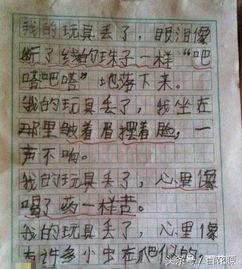 我的玩具丢了，眼泪像
断了线的珠子一样“吧
嗒吧嗒”地落下来。
我的玩具丢了，我坐在
那里皱着眉摆着脸，一
声不响。
我的玩具丢了，心里像
喝了药一样苦。
我的玩具丢了，心里像
有许多小虫在爬似的，
头条号